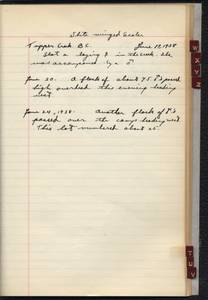 White winged Scoter
Tupper Creek B.C. June 18, 1938
Shot a laying ♀ in the creek. She
was accompanied by a ♂.
June 20. A flock of about 75 ♂'s passed
high overhead this evening heading
west.
June 24, 1938. Another flock of ♂'s
passed over the camp heading west
This lot numbered about 25.
W
X
Y
Z
T
U
V